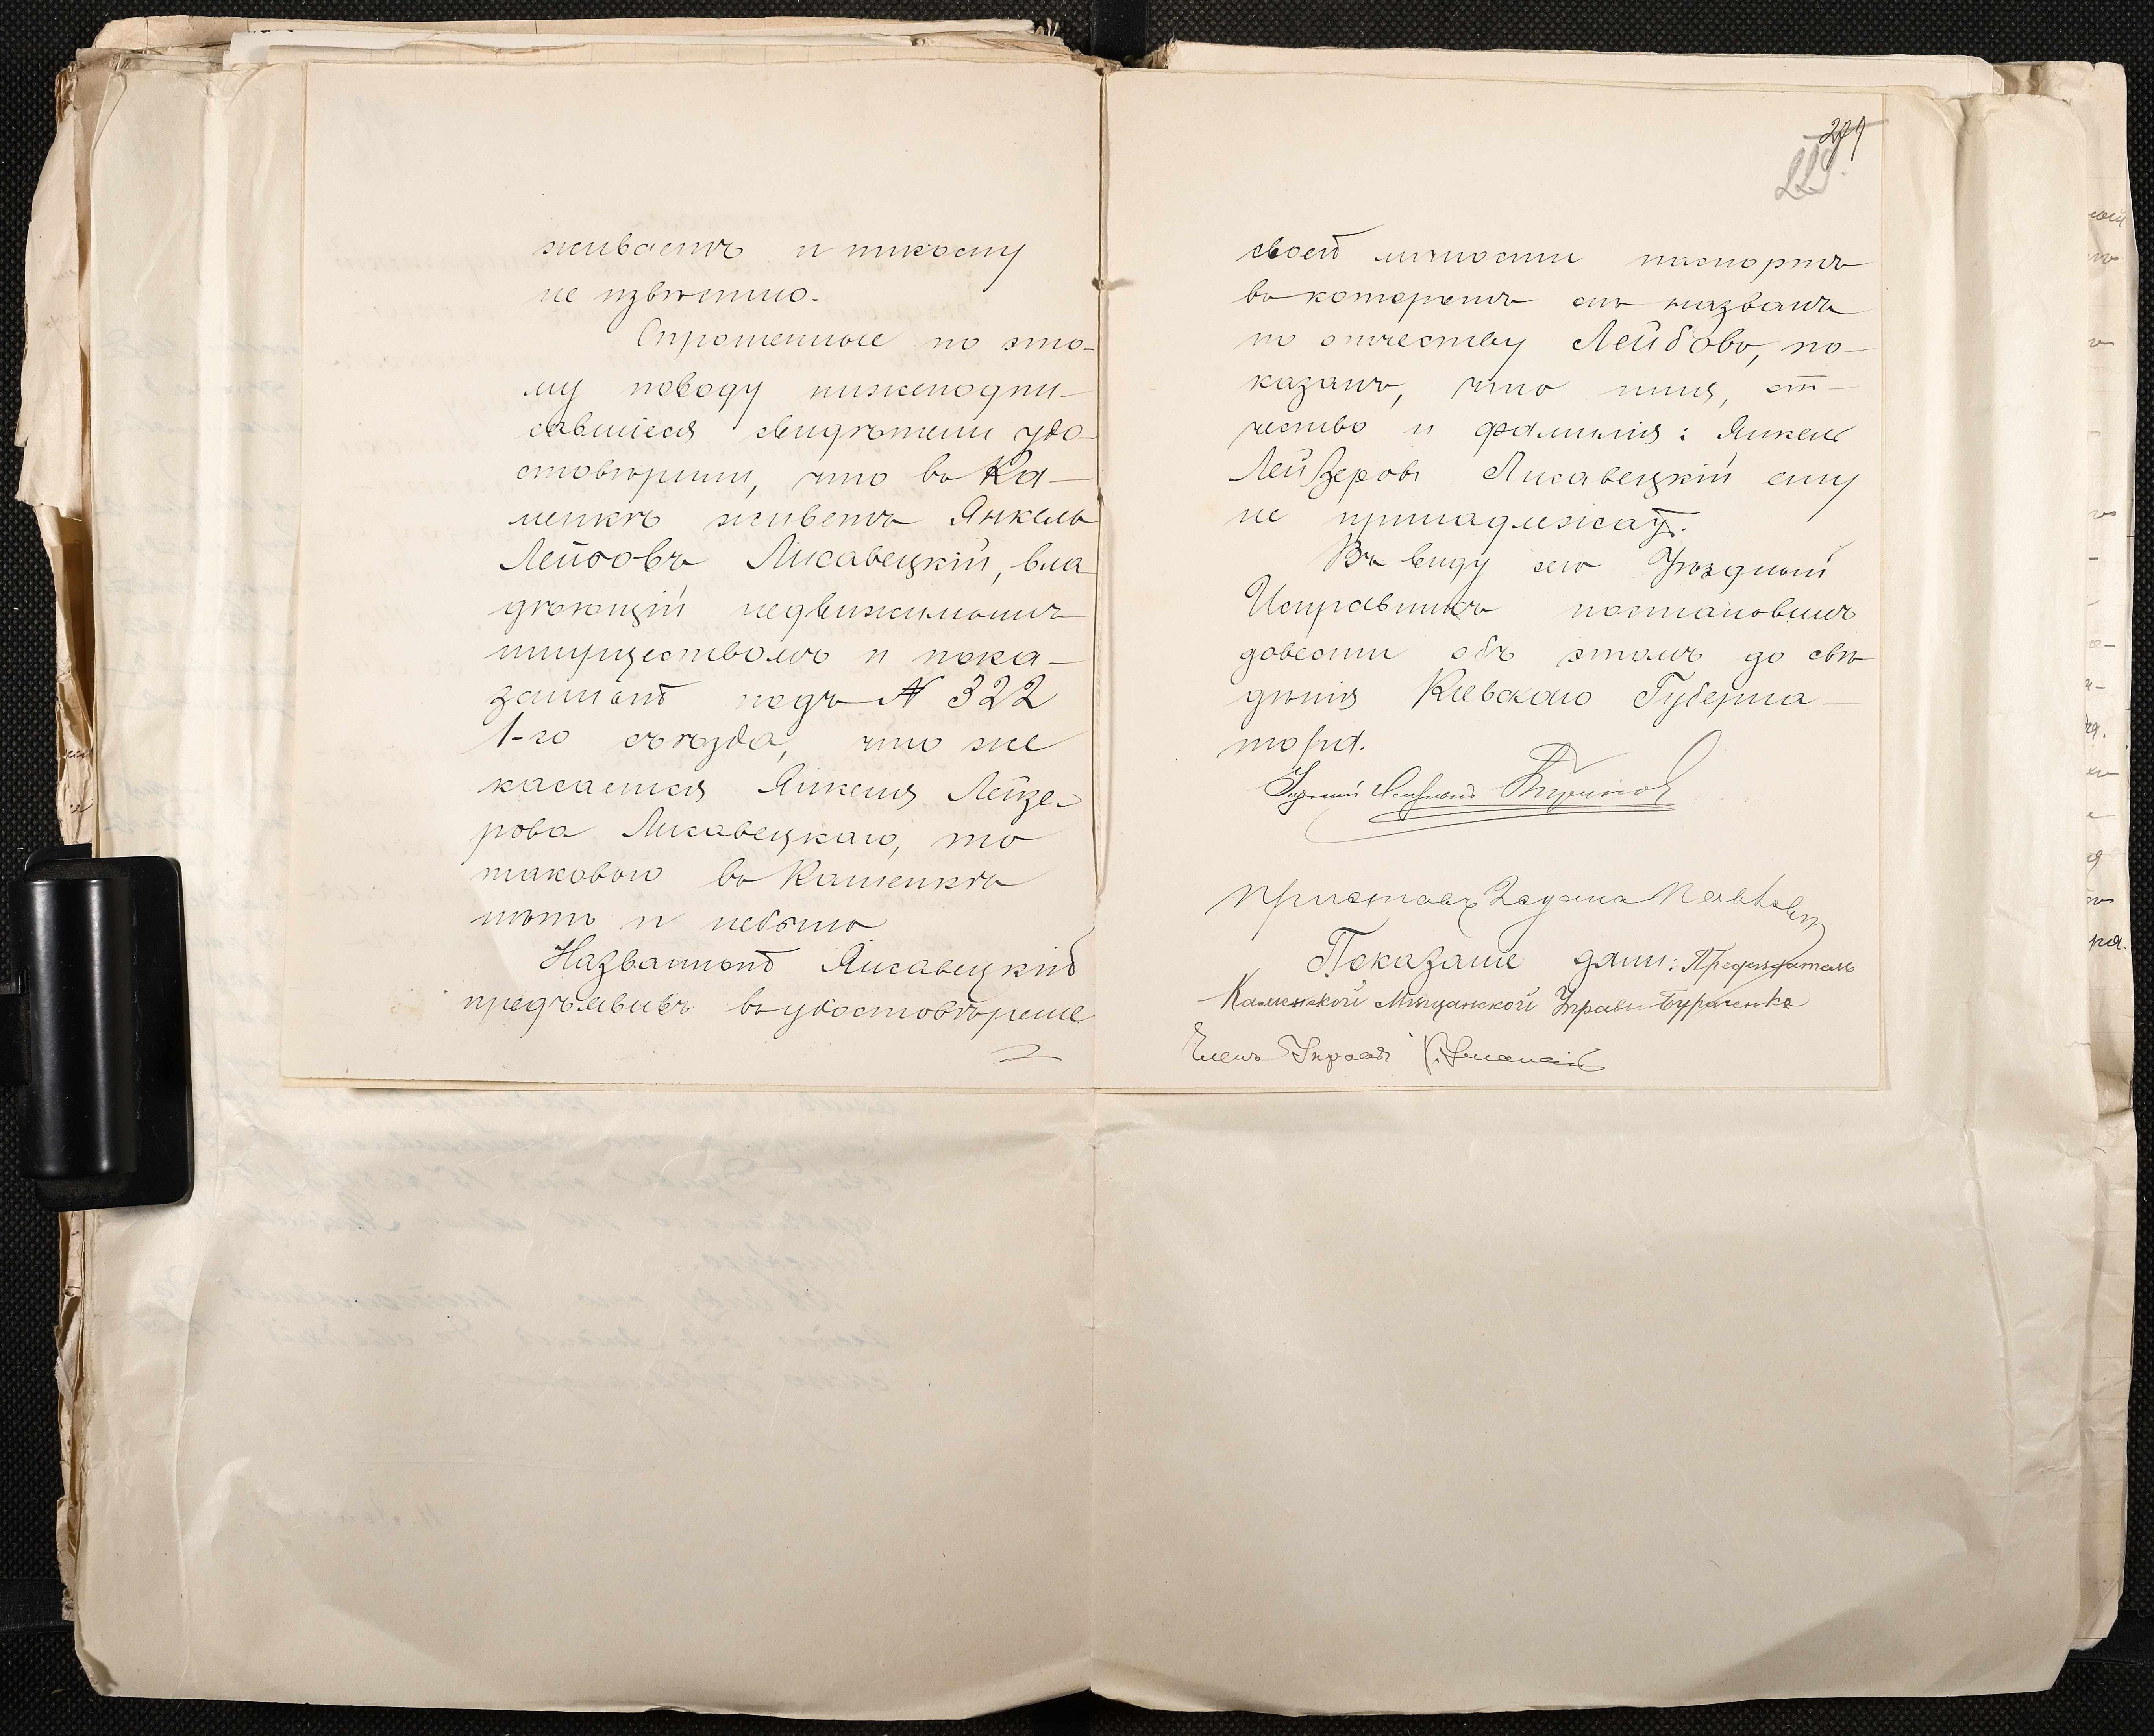 живаетъ и никому
не извѣстно.
Спрошенные по это-
му поводу нижеподпи-
савшіеся свидѣтели удо-
стовѣрили, что въ Ка-
менкѣ живетъ Янкель
Лейбовъ Лисавецкій, вла
дѣющій недвижимымъ
имуществомъ и пока-
занный подъ № 322
1-го съѣзда, что же
касается Янкеля Лейзе-
рова Лисавецкаго, то
таковаго въ Каменкѣ
нѣтъ и небыло
Названный Лисавецкій
предъявивъ въ удостовѣреніе
279
225.
своей личности паспортъ
въ которомъ онъ названъ
по отчеству Лейбовъ, по-
казалъ, что имя, от-
чество и фамилія: Янкель
Лейзеровъ Лисавецкій ему
не принадлежатъ.
Въ виду сего Уѣздный
Исправникъ постановилъ
довести объ этомъ до свѣ
дѣнія Кіевскаго Губерна-
тора.
Уѣздный Исправникъ
Приставъ 2го стана
Показаніе дали: Предсѣдатель
Каменской Мѣщанской Управы Бураченко
Членъ Управы